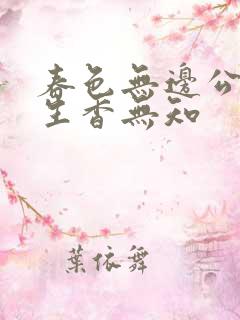 春色無邊公
生香無知
葉依舞